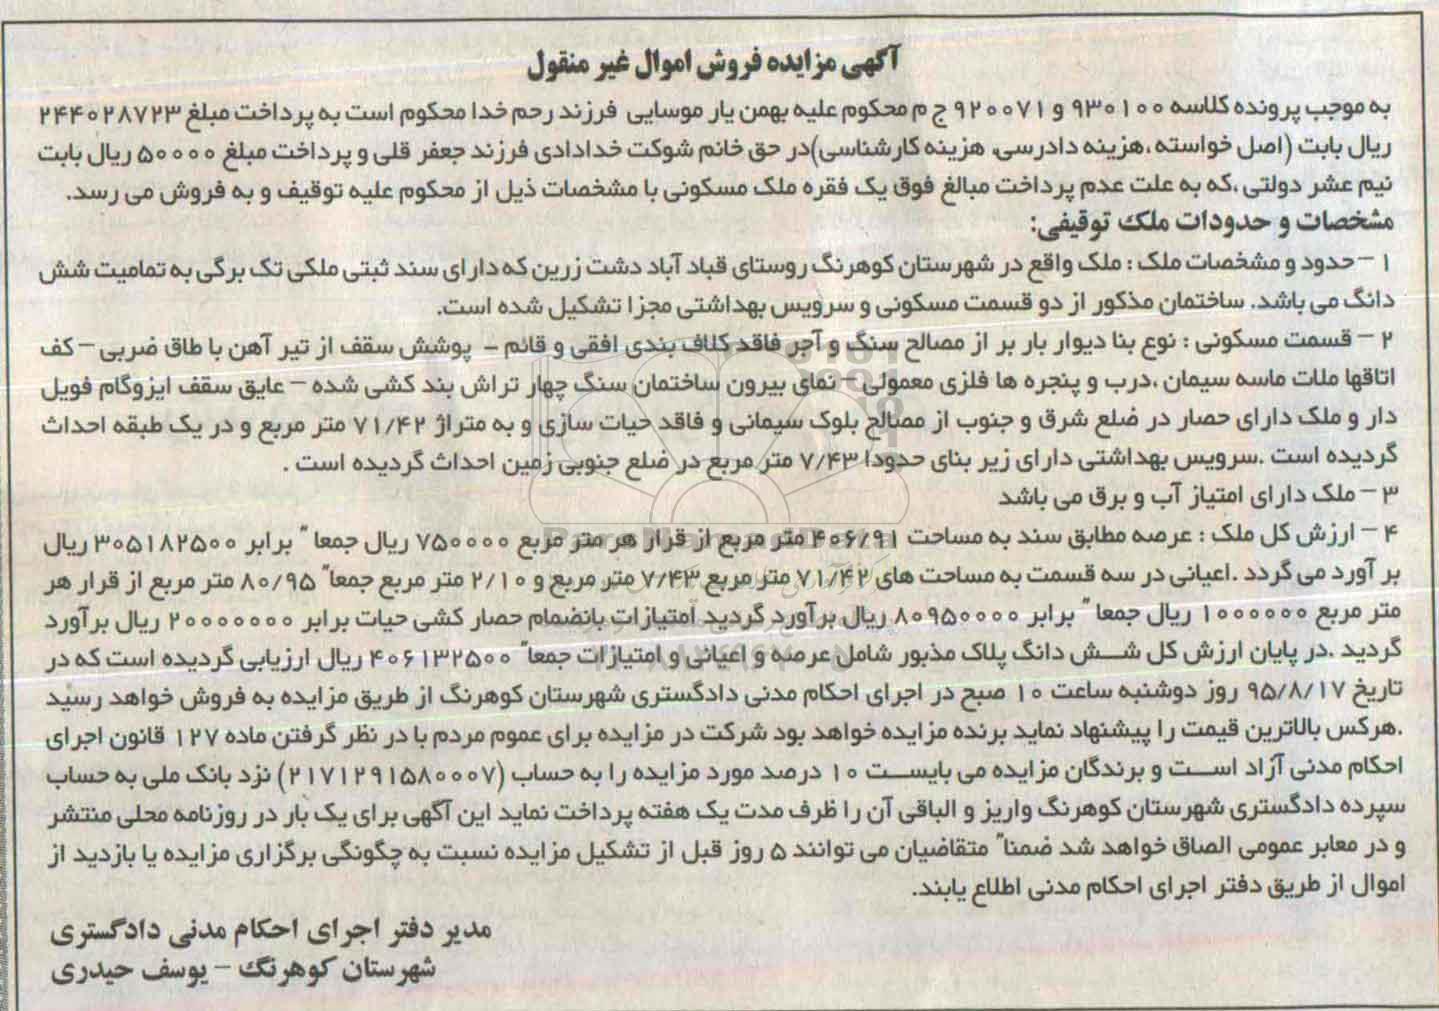 آگهی مزایده فروش اموال غیر منقول
به موجب پرونده کلاسه ۹۳۰۱۰۰ و ۹۲۰۰۷۱ ج م محکوم علیه بهمن یار موسایی فرزند رحم خدا محکوم است به پرداخت مبلغ ۲۴۴۰۲۸۷۲۳
ریال بابت (اصل خواسته ،هزینه دادرسی، هزینه کارشناسی)در حق خانم شوکت خدادادی فرزند جعفر قلی و پرداخت مبلغ ۵۰۰۰۰ ریال بابت
نیم عشر دولتی ،که به علت عدم پرداخت مبالغ فوق یک فقره ملک مسکونی با مشخصات ذیل از محکوم علیه توقیف و به فروش می رسد.
مشخصات و حدودات ملک توقیفی:
۱ – حدود و مشخصات ملک : ملک واقع در شهرستان کوهرنگ روستای قباد آباد دشت زرین که دارای سند ثبتی ملکی تک برگی به تمامیت شش
دانگ می باشد. ساختمان مذکور از دو قسمت مسکونی و سرویس بهداشتی مجزا تشکیل شده است.
۲ – قسمت مسکونی : نوع بنا دیوار بار بر از مصالح سنگ و آجر فاقد کلاف بندی افقی و قائم – پوشش سقف از تیر آهن با طاق ضربی – کف
اتاقها ملات ماسه سیمان ،درب و پنجره ها فلزی معمولی – نمای بیرون ساختمان سنگ چهار تراش بند کشی شده – عایق سقف ایزوگام فویل
دار و ملک دارای حصار در ضلع شرق و جنوب از مصالح بلوک سیمانی و فاقد حیات سازی و به متراژ ۷۱/۴۲ متر مربع و در یک طبقه احداث
گردیده است .سرویس بهداشتی دارای زیر بنای حدودا ۷/۴۳ متر مربع در ضلع جنوبی زمین احداث گردیده است .
۳ – ملک دارای امتیاز آب و برق می باشد
۴ – ارزش کل ملک : عرصه مطابق سند به مساحت ۴۰۶/۹۱ متر مربع از قرار هر متر مربع ۷۵۰۰۰۰ ریال جمعا ً برابر ۳۰۵۱۸۲۵۰۰ ریال
بر آورد می گردد .اعیانی در سه قسمت به مساحت های ۷۱/۴۲ متر مربع ۷/۴۳ متر مربع و ۲/۱۰ متر مربع جمعا ً ۸۰/۹۵ متر مربع از قرار هر
متر مربع ۱۰۰۰۰۰۰ ریال جمعا ً برابر ۸۰۹۵۰۰۰۰ ریال برآورد گردید امتیازات بانضمام حصار کشی حیات برابر ۲۰۰۰۰۰۰۰ ریال برآورد
گردید .در پایان ارزش کل شش دانگ پلاک مذبور شامل عرصه و اعیانی و امتیازات جمعا ً ۴۰۶۱۳۲۵۰۰ ریال ارزیابی گردیده است که در
تاریخ ۹۵/۸/۱۷ روز دوشنبه ساعت ۱۰ صبح در اجرای احکام مدنی دادگستری شهرستان کوهرنگ از طریق مزایده به فروش خواهد رسید
.هرکس بالاترین قیمت را پیشنهاد نماید برنده مزایده خواهد بود شرکت در مزایده برای عموم مردم با در نظر گرفتن ماده ۱۲۷ قانون اجرای
احکام مدنی آزاد است و برندگان مزایده می بایست ۱۰ درصد مورد مزایده را به حساب (۲۱۷۱۲۹۱۵۸۰۰۰۷) نزد بانک ملی به حساب
سپرده دادگستری شهرستان کوهرنگ واریز و الباقی آن را ظرف مدت یک هفته پرداخت نماید این آگهی برای یک بار در روزنامه محلی منتشر
و در معابر عمومی الصاق خواهد شد ضمنا ً متقاضیان می توانند ۵ روز قبل از تشکیل مزایده نسبت به چگونگی برگزاری مزایده یا بازدید از
اموال از طریق دفتر اجرای احکام مدنی اطلاع یابند.
مدیر دفتر اجرای احکام مدنی دادگستری
شهرستان کوهرنگ – یوسف حیدری